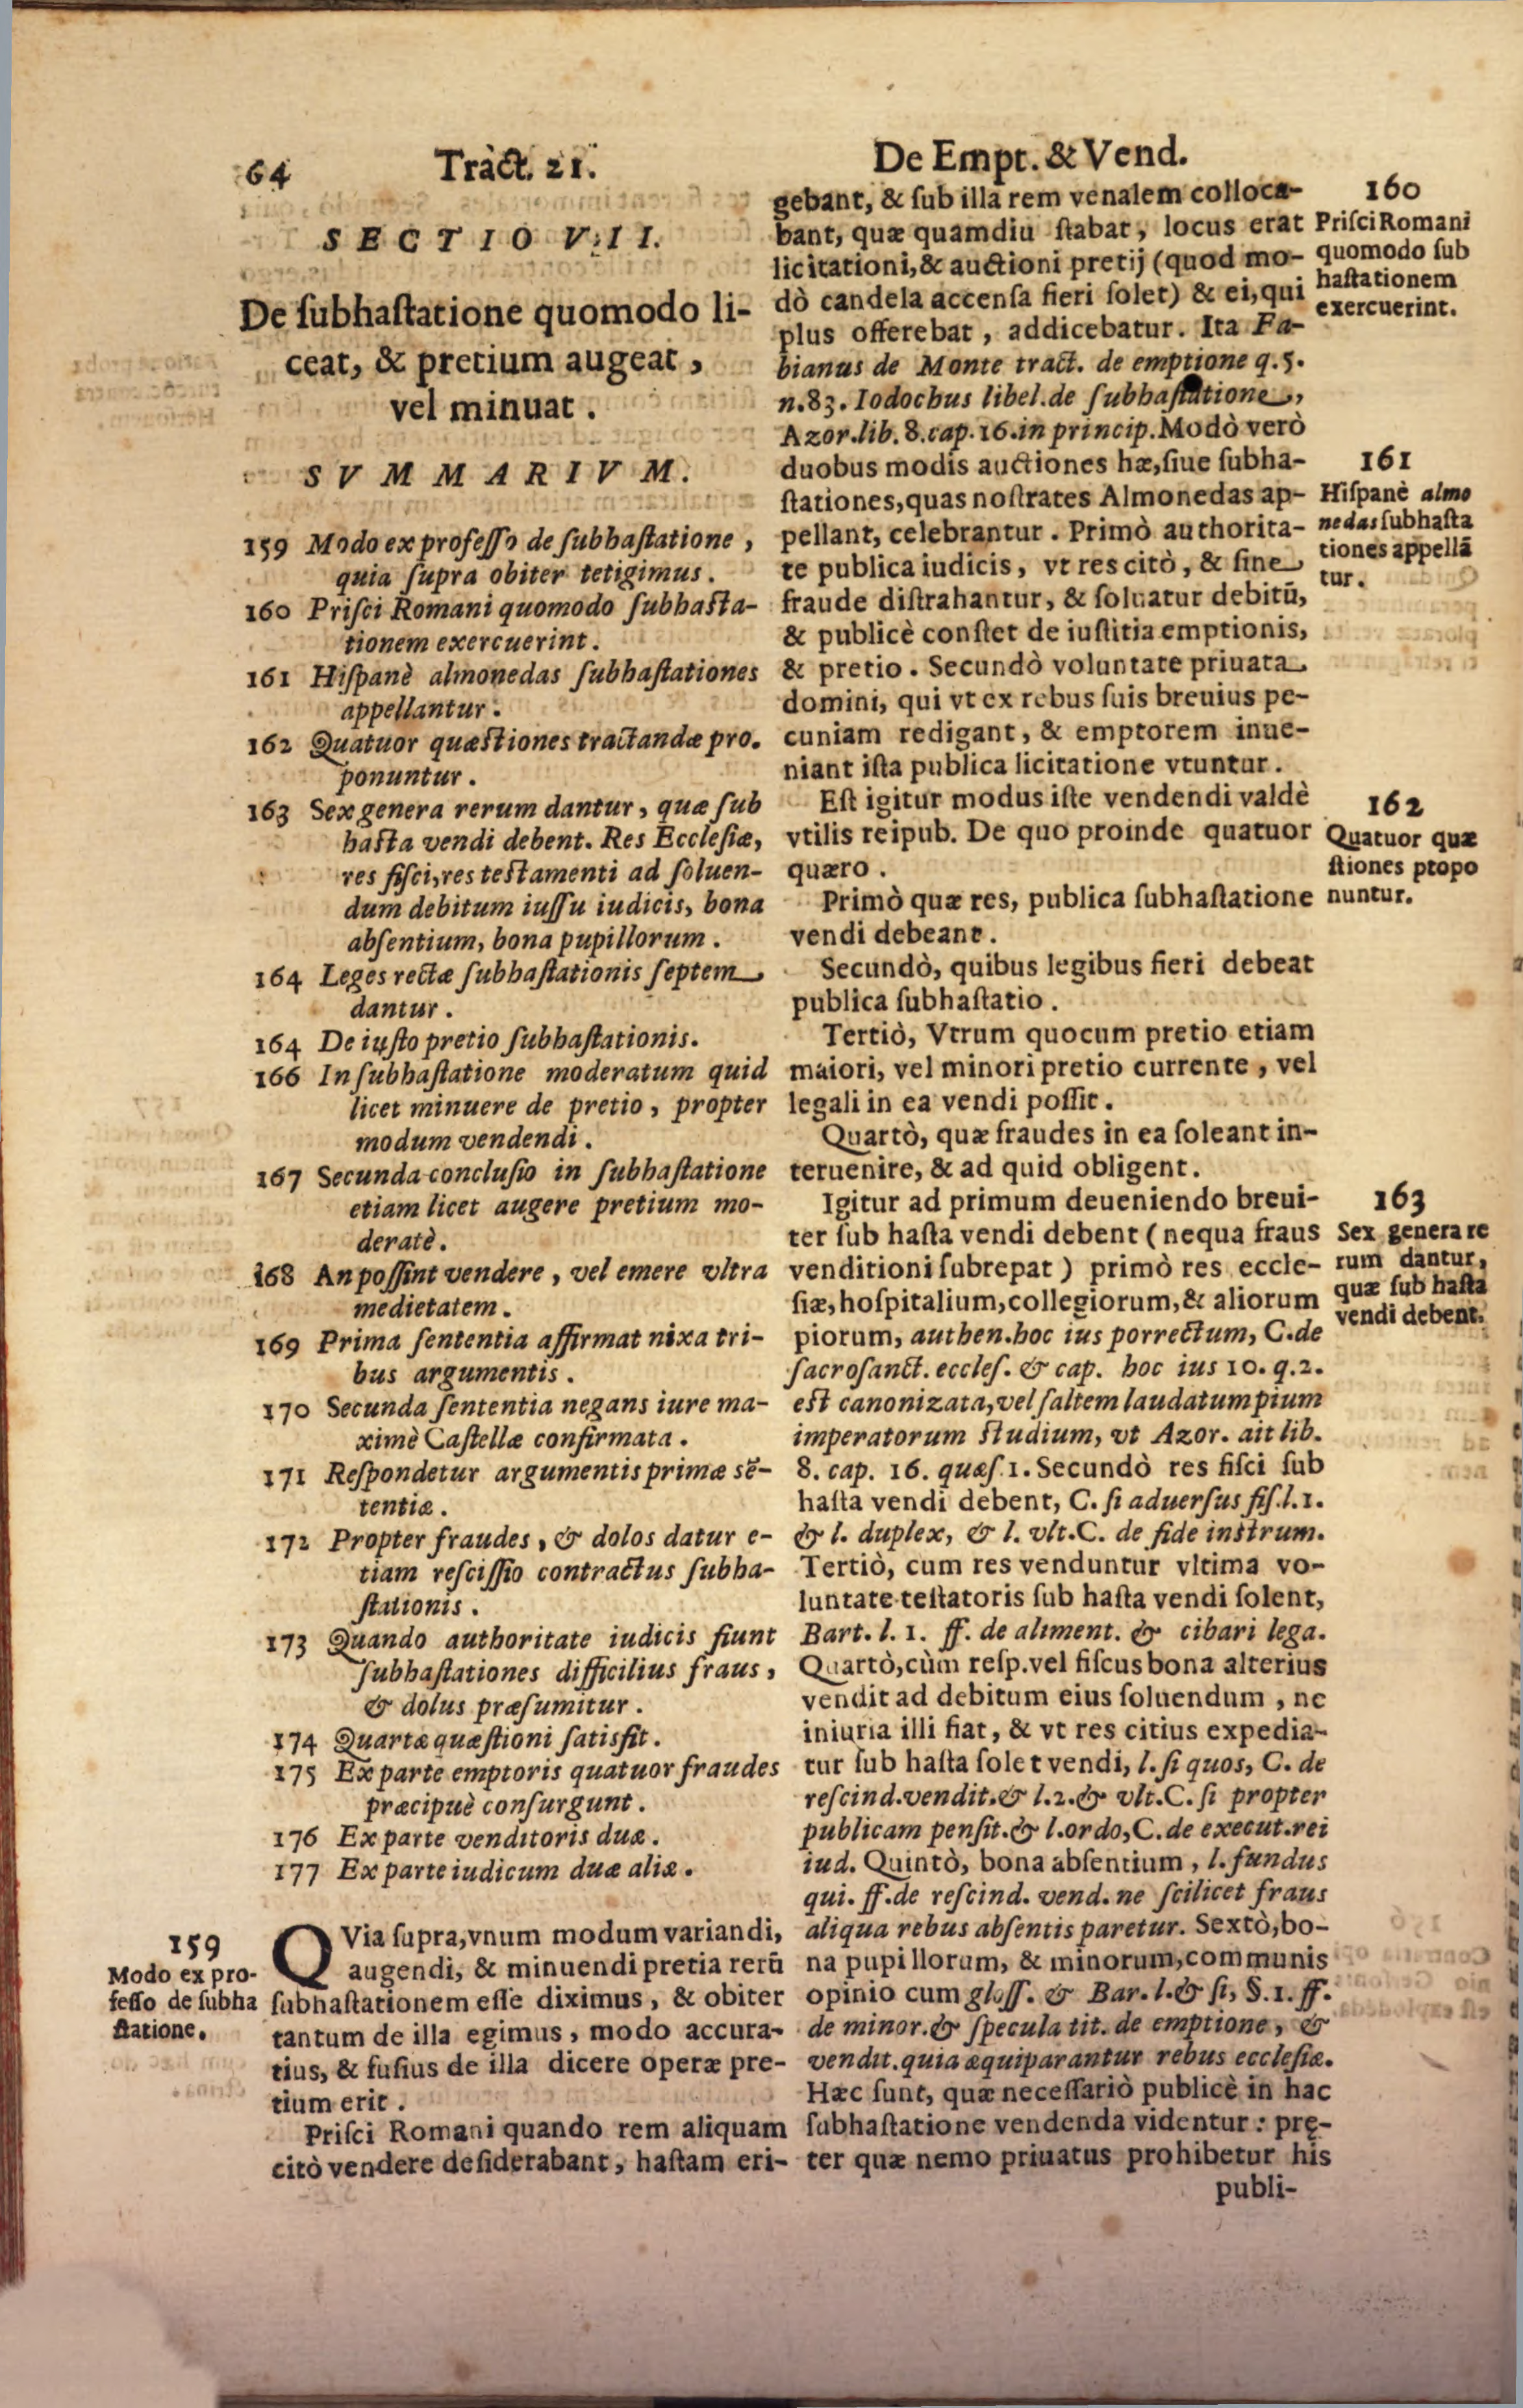 64 Tract. 21.
SECTIO VII.
De ſubhaſtatione quomodo li-
ceat, & pretium augeat,
vel minuat.
SVMMARIVM.
159 Modo ex profeſſo de ſubhaſtatione,
quia ſupra obiter tetigimus.
160 Priſci Romani quomodo ſubhaſta-
tionem exercuerint.
161 Hiſpanè almonedas ſubhaſtationes
appellantur.
162 Quatuor quæſtiones tractandæ pro.
ponuntur.
163 Sex genera rerum dantur, quæ ſub
haſta vendi debent. Res Eccleſiæ,
res fiſci, res teſtamenti ad ſoluen-
dum debitum iuſſu iudicis, bona
abſentium, bona pupillorum.
164 Leges rectæ ſubhaſtationis ſeptem
dantur.
164 De iuſto pretio ſubhaſtationis.
166 In ſubhaſtatione moderatum quid
licet minuere de pretio, propter
modum vendendi.
167 Secunda concluſio in ſubhaſtatione
etiam licet augere pretium mo-
deratè.
168 An poſſint vendere, vel emere vltra
medietatem.
169 Prima ſententia affirmat nixa tri-
bus argumentis.
170 Secunda ſententia negans iure ma-
ximè Caſtellæ confirmata.
171 Reſpondetur argumentis primæ sē-
tentiæ.
172 Propter fraudes, & dolos datur e-
tiam reſciſſio contractus ſubha-
ſtationis.
173 Quando authoritate iudicis fiunt
ſubhaſtationes difficilius fraus,
& dolus præſumitur.
174 Quartæ quæſtioni ſatisfit.
175 Ex parte emptoris quatuor fraudes
præcipuè conſurgunt.
176 Ex parte venditoris duæ.
177 Ex parte iudicum duæ aliæ.
159
Modo ex pro-
feſſo de ſubha
ſtatione.
QVia ſupra, vnum modum variandi,
augendi, & minuendi pretia rerū
ſubhaſtationem eſſe diximus, & obiter
tantum de illa egimus, modo accura-
tius, & fuſius de illa dicere operæ pre-
tium erit.
Priſci Romani quando rem aliquam
citò vendere deſiderabant, haſtam eri-
De Empt. & Vend.
gebant, & ſub illa rem venalem colloca-
bant, quæ quamdiu ſtabat, locus erat
licitationi, & auctioni pretij (quod mo-
dò candela accenſa fieri ſolet) & ei, qui
plus offerebat, addicebatur. Ita Fa-
bianus de Monte tract. de emptione q.5.
n.83. Iodochus libel. de ſubhaſtatione,
Azor. lib. 8. cap. 16. in princip. Modò verò
duobus modis auctiones hæ, ſiue ſubha-
ſtationes, quas noſtrates Almonedas ap-
pellant, celebrantur. Primò authorita-
te publica iudicis, vt res citò, & ſine
fraude diſtrahantur, & ſoluatur debitū,
& publicè conſtet de iuſtitia emptionis,
& pretio. Secundò voluntate priuata
domini, qui vt ex rebus ſuis breuius pe-
cuniam redigant, & emptorem inue-
niant iſta publica licitatione vtuntur.
Eſt igitur modus iſte vendendi valdè
vtilis reipub. De quo proinde quatuor
quæro.
Primò quæ res, publica ſubhaſtatione
vendi debeant.
Secundò, quibus legibus fieri debeat
publica ſubhaſtatio.
Tertiò, Vtrum quocum pretio etiam
maiori, vel minori pretio currente, vel
legali in ea vendi poſſit.
Quartò, quæ fraudes in ea ſoleant in-
teruenire, & ad quid obligent.
Igitur ad primum deueniendo breui-
ter ſub haſta vendi debent (nequa fraus
venditioni ſubrepat) primò res eccle-
ſiæ, hoſpitalium, collegiorum, & aliorum
piorum, authen. hoc ius porrectum, C. de
ſacroſanct. eccleſ. & cap. hoc ius 10. q.2.
eſt canonizata, vel ſaltem laudatum pium
imperatorum ſtudium, vt Azor. ait lib.
8. cap. 16. quæſ. 1. Secundò res fiſci ſub
haſta vendi debent, C. ſi aduerſus fiſ. l.1.
& l. duplex, & l. vlt. C. de fide inſtrum.
Tertiò, cum res venduntur vltima vo-
luntate teſtatoris ſub haſta vendi ſolent,
Bart. l. 1. ff. de aliment. & cibari lega.
Quartò, cùm reſp. vel fiſcus bona alterius
vendit ad debitum eius ſoluendum, ne
iniuria illi fiat, & vt res citius expedia-
tur ſub haſta ſolet vendi, l. ſi quos, C. de
reſcind. vendit. & l.2. & vlt. C. ſi propter
publicam penſit. & l. ordo, C. de execut. rei
iud. Quintò, bona abſentium, l. fundus
qui. ff. de reſcind. vend. ne ſcilicet fraus
aliqua rebus abſentis paretur. Sextò, bo-
na pupillorum, & minorum, communis
opinio cum gloſſ. & Bar. l. & ſi, §. 1. ff.
de minor. & ſpecula tit. de emptione, &
vendit. quia æquiparantur rebus eccleſiæ.
Hæc ſunt, quæ neceſſariò publicè in hac
ſubhaſtatione vendenda videntur: prę-
ter quæ nemo priuatus prohibetur his
publi-
160
Priſci Romani
quomodo ſub
haſtationem
exercuerint.
161
Hiſpanè almo
nedas ſubhaſta
tiones appellā
tur.
162
Quatuor quæ
ſtiones propo
nuntur.
163
Sex genera re
rum dantur,
quæ ſub haſta
vendi debent.